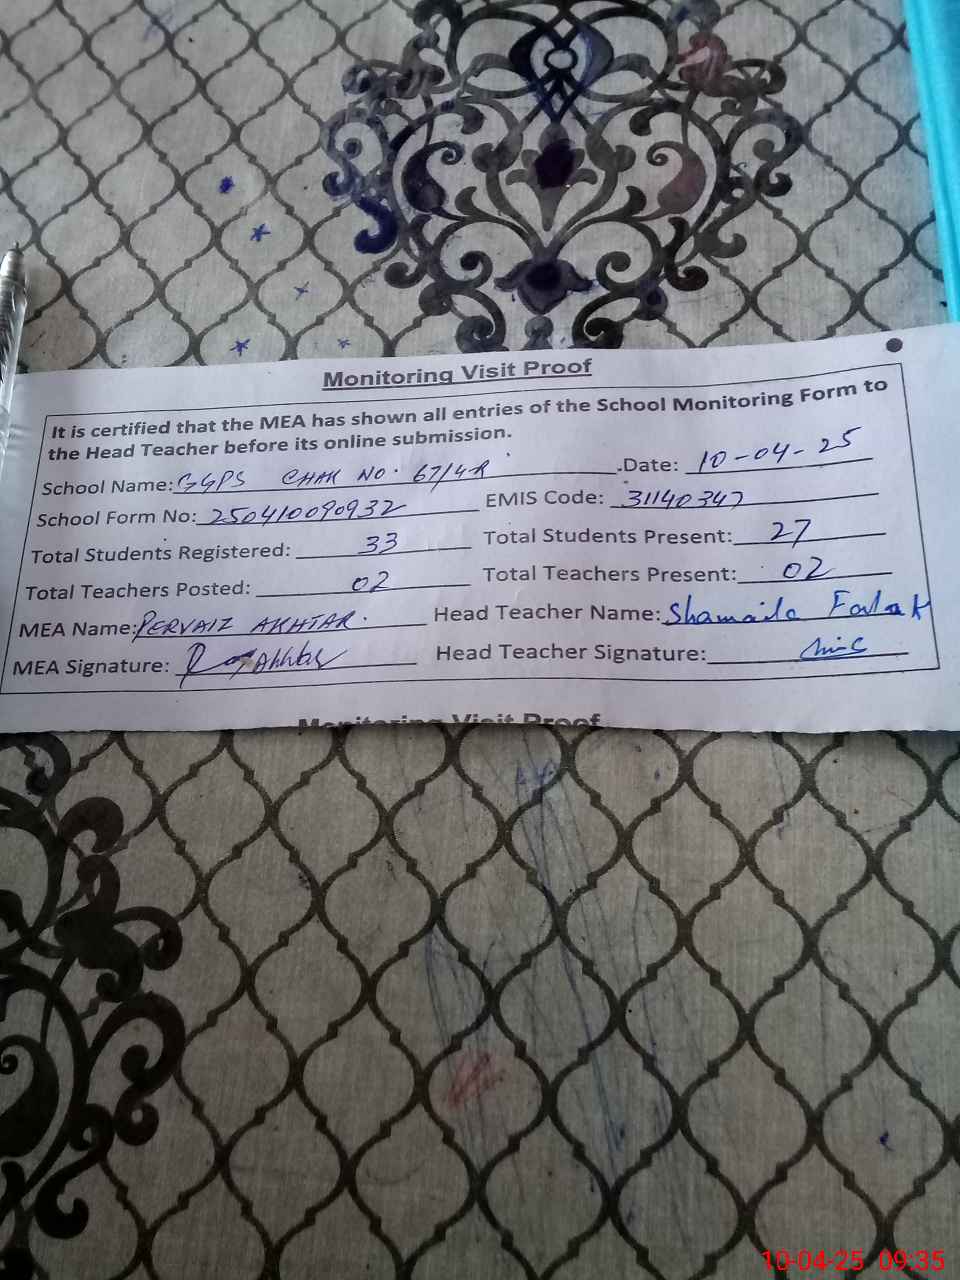 Monitoring Visit Proof
It is certified that the MEA has shown all entries of the School Monitoring Form to
the Head Teacher before its online submission.
School Name: GGPS CHAK NO. 67/4-R Date: 10-04-25
School Form No: 250410090932 EMIS Code: 31140347
Total Students Registered: 33 Total Students Present: 27
Total Teachers Posted: 02 Total Teachers Present: 02
MEA Name: PERVAIZ AKHTAR. Head Teacher Name: Shamaila Falak
MEA Signature: Head Teacher Signature:
Monitoring Visit Proof
10-04-25 09:35